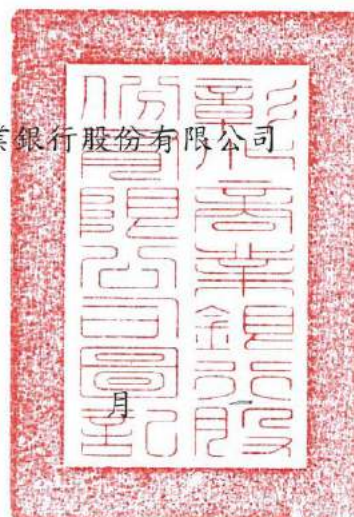 業銀行股份有限公司
月
彰化商業銀行股
份有限公司圖記